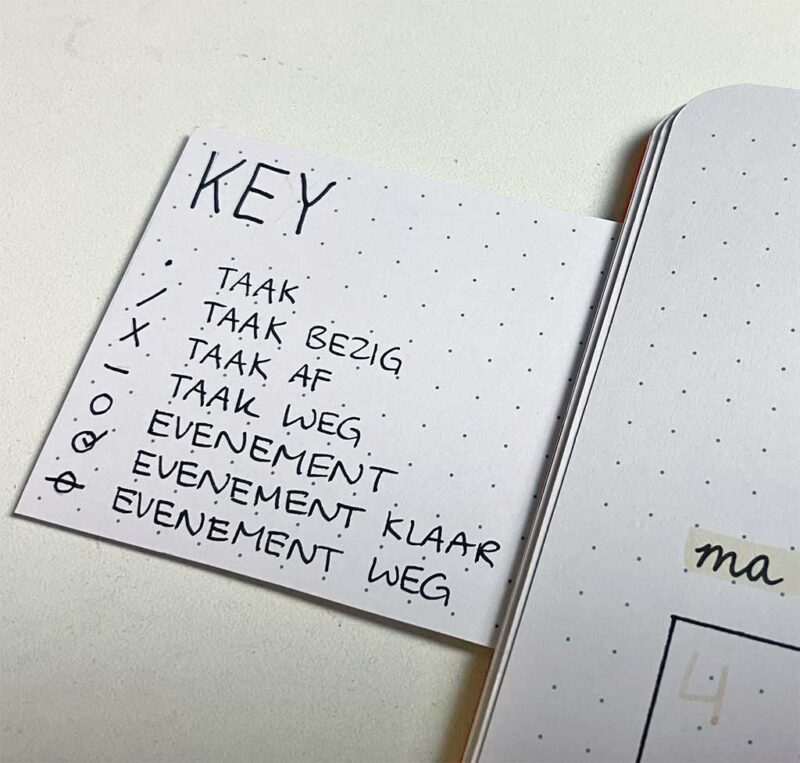 KEY
• TAAK
/ TAAK BEZIG
X TAAK AF
– TAAK WEG
O EVENEMENT
EVENEMENT KLAAR
EVENEMENT WEG
ma
4